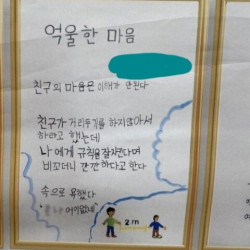 억울한 마음
친구의 마음은 이해가 안된다
친구가 거리두기를 하지않아서
하라고 했는데
나 에게 규칙을 잘지킨다면
비꼬더니 깐깐 하다고 한다
속으로 욕했다
어이없네"
2m